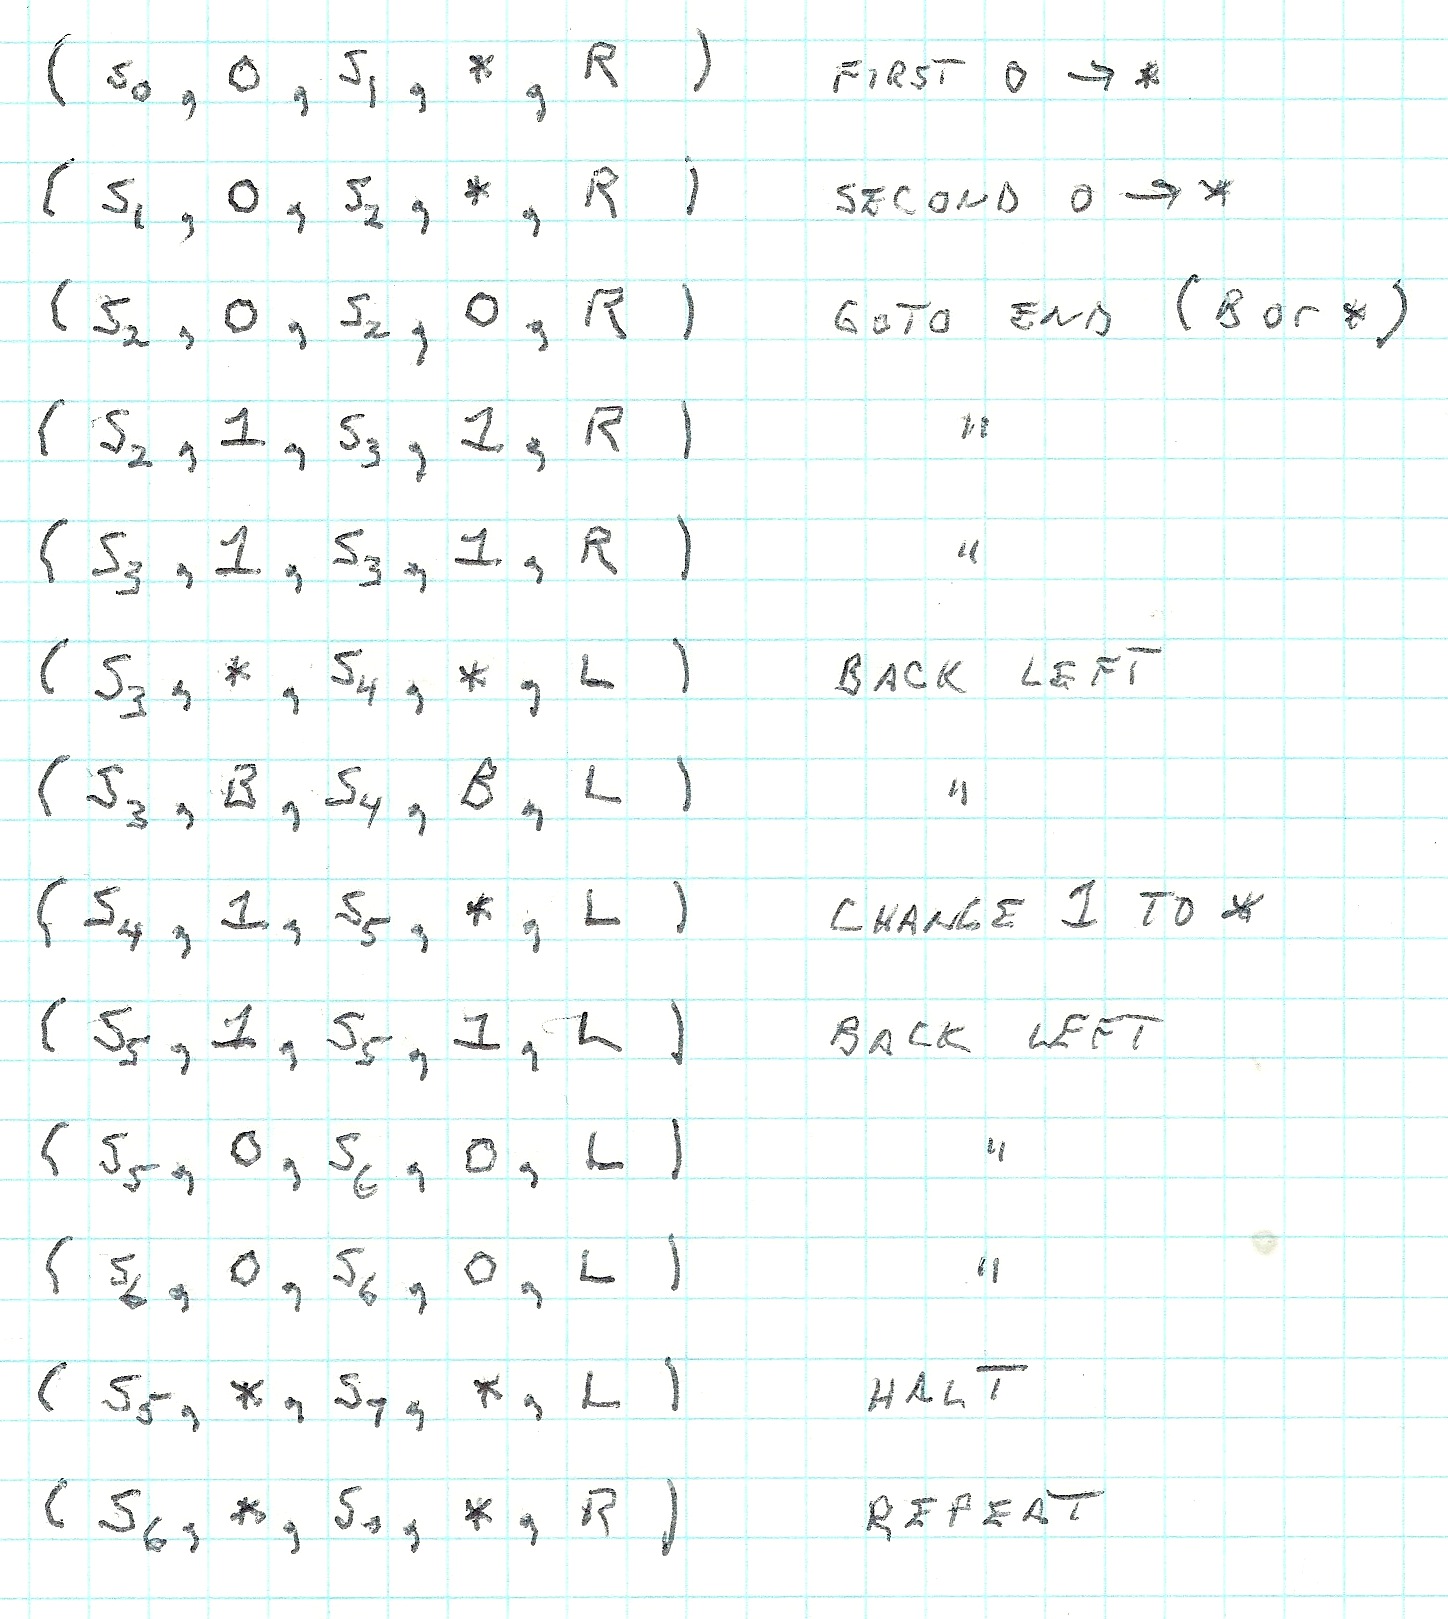 ( S₀, 0, S₁, *, R ) FIRST 0 → *
( S₁, 0, S₂, *, R ) SECOND 0 → *
( S₂, 0, S₂, 0, R ) GOTO END (B or *)
( S₂, 1, S₃, 1, R ) "
( S₃, 1, S₃, 1, R ) "
( S₃, *, S₄, *, L ) BACK LEFT
( S₃, B, S₄, B, L ) "
( S₄, 1, S₅, *, L ) CHANGE 1 TO *
( S₅, 1, S₅, 1, L ) BACK LEFT
( S₅, 0, S₆, 0, L ) "
( S₆, 0, S₆, 0, L ) "
( S₅, *, S₇, *, L ) HALT
( S₆, *, S₀, *, R ) REPEAT